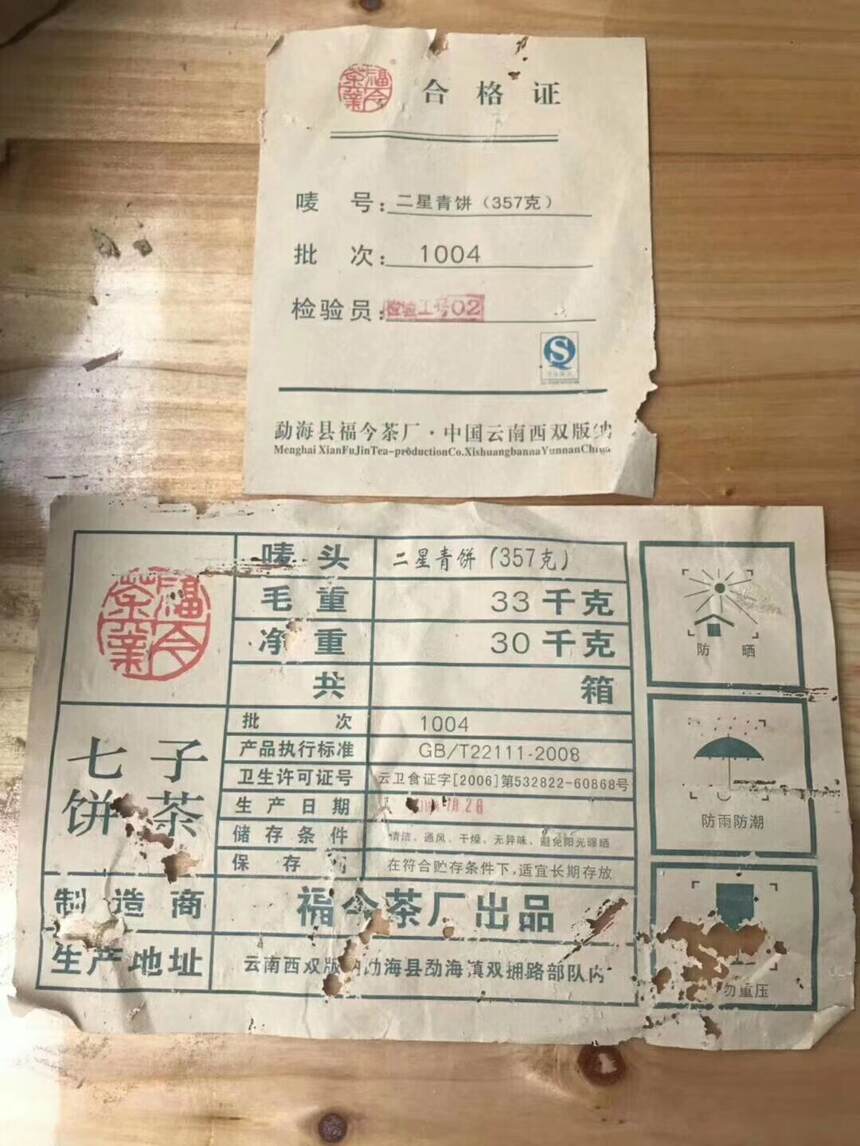 福今茶業 合格证
唛 号：二星青饼（357克）
批 次：1004
检验员：检验工号02
勐海县福今茶厂·中国云南西双版纳
Menghai XianFuJinTea-productionCo.XishuangbannaYunnanChina
福今茶業
唛头 二星青饼（357克）
毛重 33千克
净重 30千克
共 箱
七子
饼茶
批次 1004
产品执行标准 GB/T22111-2008
卫生许可证号 云卫食证字[2006]第532822-60868号
生产日期
储存条件 清洁、通风、干燥、无异味、避免阳光曝晒
保存 在符合贮存条件下，适宜长期存放
制造商 福今茶厂出品
生产地址 云南西双版纳勐海县勐海镇双拥路部队内
防晒
防雨防潮
勿重压